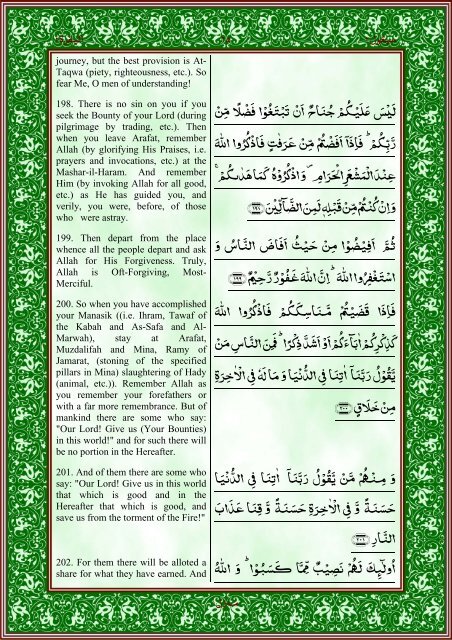 journey, but the best provision is At-
Taqwa (piety, righteousness, etc.). So
fear Me, O men of understanding!
198. There is no sin on you if you
seek the Bounty of your Lord (during
pilgrimage by trading, etc.). Then
when you leave Arafat, remember
Allah (by glorifying His Praises, i.e.
prayers and invocations, etc.) at the
Mashar-il-Haram. And remember
Him (by invoking Allah for all good,
etc.) as He has guided you, and
verily, you were, before, of those
who were astray.
لَيْسَ عَلَيْكُمْ جُنَاحٌ اَنْ تَبْتَغُوْا فَضْلًا مِّنْ
رَّبِّكُمْ ؕ فَاِذَاۤ اَفَضْتُمْ مِّنْ عَرَفٰتٍ فَاذْكُرُوا اللّٰهَ
عِنْدَ الْمَشْعَرِ الْحَرَامِ ۪ وَاذْكُرُوْهُ كَمَا هَدٰىكُمْ ۚ
وَاِنْ كُنْتُمْ مِّنْ قَبْلِهٖ لَمِنَ الضَّآلِّيْنَ ﴿۱۹۸﴾
199. Then depart from the place
whence all the people depart and ask
Allah for His Forgiveness. Truly,
Allah is Oft-Forgiving, Most-
Merciful.
ثُمَّ اَفِيْضُوْا مِنْ حَيْثُ اَفَاضَ النَّاسُ وَ
اسْتَغْفِرُوا اللّٰهَ ؕ اِنَّ اللّٰهَ غَفُوْرٌ رَّحِيْمٌ ﴿۱۹۹﴾
200. So when you have accomplished
your Manasik ((i.e. Ihram, Tawaf of
the Kabah and As-Safa and Al-
Marwah), stay at Arafat,
Muzdalifah and Mina, Ramy of
Jamarat, (stoning of the specified
pillars in Mina) slaughtering of Hady
(animal, etc.)). Remember Allah as
you remember your forefathers or
with a far more remembrance. But of
mankind there are some who say:
"Our Lord! Give us (Your Bounties)
in this world!" and for such there will
be no portion in the Hereafter.
فَاِذَا قَضَيْتُمْ مَّنَاسِكَكُمْ فَاذْكُرُوا اللّٰهَ
كَذِكْرِكُمْ اٰبَآءَكُمْ اَوْ اَشَدَّ ذِكْرًا ؕ فَمِنَ النَّاسِ مَنْ
يَّقُوْلُ رَبَّنَاۤ اٰتِنَا فِى الدُّنْيَا وَ مَا لَهٗ فِى الْاٰخِرَةِ
مِنْ خَلَاقٍ ﴿۲۰۰﴾
201. And of them there are some who
say: "Our Lord! Give us in this world
that which is good and in the
Hereafter that which is good, and
save us from the torment of the Fire!"
وَ مِنْهُمْ مَّنْ يَّقُوْلُ رَبَّنَاۤ اٰتِنَا فِى الدُّنْيَا
حَسَنَةً وَّ فِى الْاٰخِرَةِ حَسَنَةً وَّ قِنَا عَذَابَ
النَّارِ ﴿۲۰۱﴾
202. For them there will be alloted a
share for what they have earned. And
اُولٰٓئِكَ لَهُمْ نَصِيْبٌ مِّمَّا كَسَبُوْا ؕ وَ اللّٰهُ